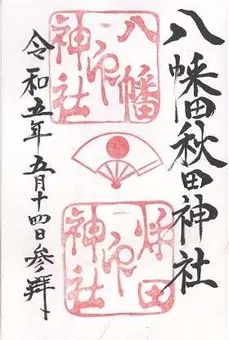 八幡秋田神社
八幡神社之印
秋田神社之印
令和五年五月十四日参拝